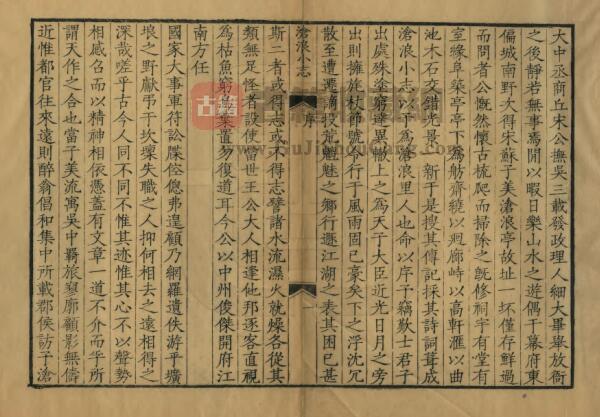 大中丞商丘宋公撫吳三載發政理人細大畢舉放衙
之後靜若無事焉閒以暇日樂山水之遊偶于幕府東
偏城南野次得宋蘇子美滄浪亭故址一坏僅存鮮過
而問者公慨然懷古梳爬而掃除之旣修祠宇有堂有
室緣阜築亭亭下為舫齋繞以迴廊峙以高軒滙以曲
池木石交錯光景一新于是搜其傳記採其詩詞葺成
滄浪小志以予為滄浪里人也命以序予竊歎士君子
出處殊塗窮達異轍上之為天子大臣近光日月之旁
出則擁旄杖節號令行于風雨固已豪矣下之浮沈冗
散至遭遷謫投荒魑魅之鄉行遯江湖之表其困已甚
滄浪小志
序
一
斯二者或得志或不得志譬諸水流濕火就燥各從其
類無足怪者設使當世王公大人相逢他邦逐客直視
為枯魚窮鳥棄置勿復道耳今公以中州俊傑開府江
南方任
國家大事軍符訟牒倥傯弗遑顧乃網羅遺佚游乎壙
埌之野獻弔于坎壈失職之人抑何相去之遠相得之
深哉嗟乎古今人同不同不惟其迹惟其心不以聲勢
相感召而以精神相依憑蓋有文章一道不介而乎所
謂天作之合也當子美流寓吳中羇旅寂廓顧影無儔
近惟都官往來遠則醉翁倡和集中所載郡侯訪予滄
古籍
www.SuJiShuCang.com